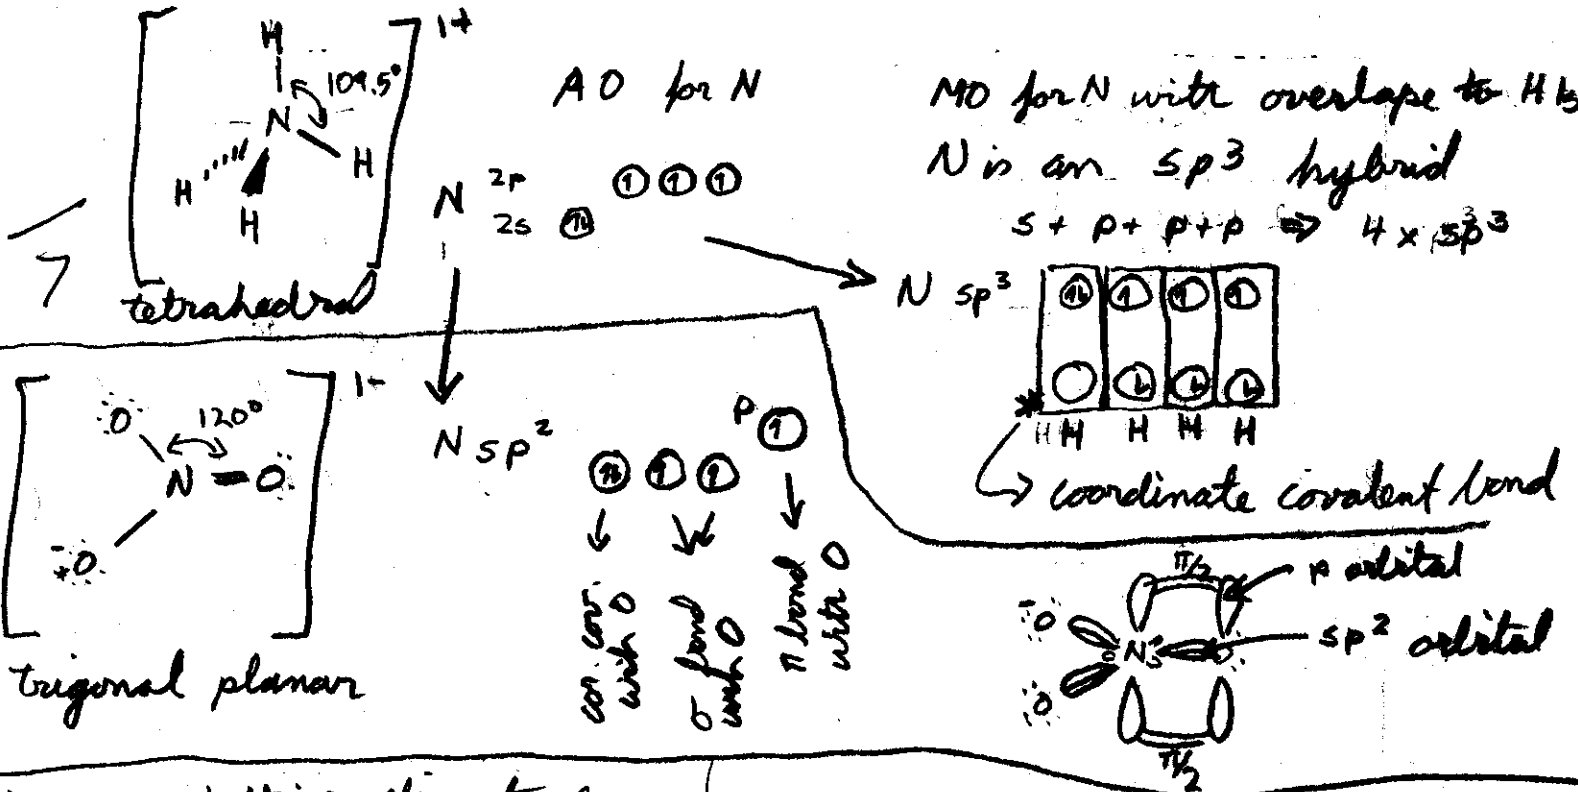 1+
H
109.5°
N
H
H
H
tetrahedral
7
AO for N
N 2p
2s
MO for N with overlape to H's
N is an sp3 hybrid
s + p + p + p ⇒ 4 x sp3
N sp3
H H H H
coordinate covalent bond
1-
O
120°
N = O
O
trigonal planar
N sp2
p
cov. with O
σ bond with O
π bond with O
π/2
p orbital
sp2 orbital
O
N
O
O
π/2